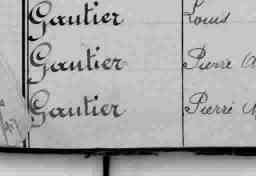 Gautier Louis
Gautier Pierre
Gautier Pierre